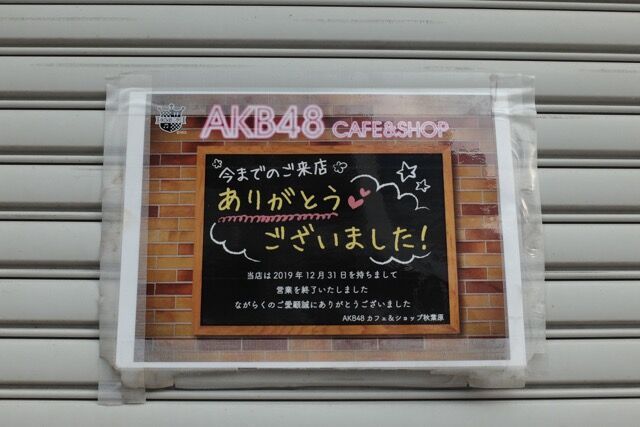 AKB48 CAFE&SHOP
今までのご来店
ありがとう
ございました!
当店は2019年12月31日を持ちまして
営業を終了いたしました
ながらくのご愛顧誠にありがとうございました
AKB48 カフェ&ショップ秋葉原